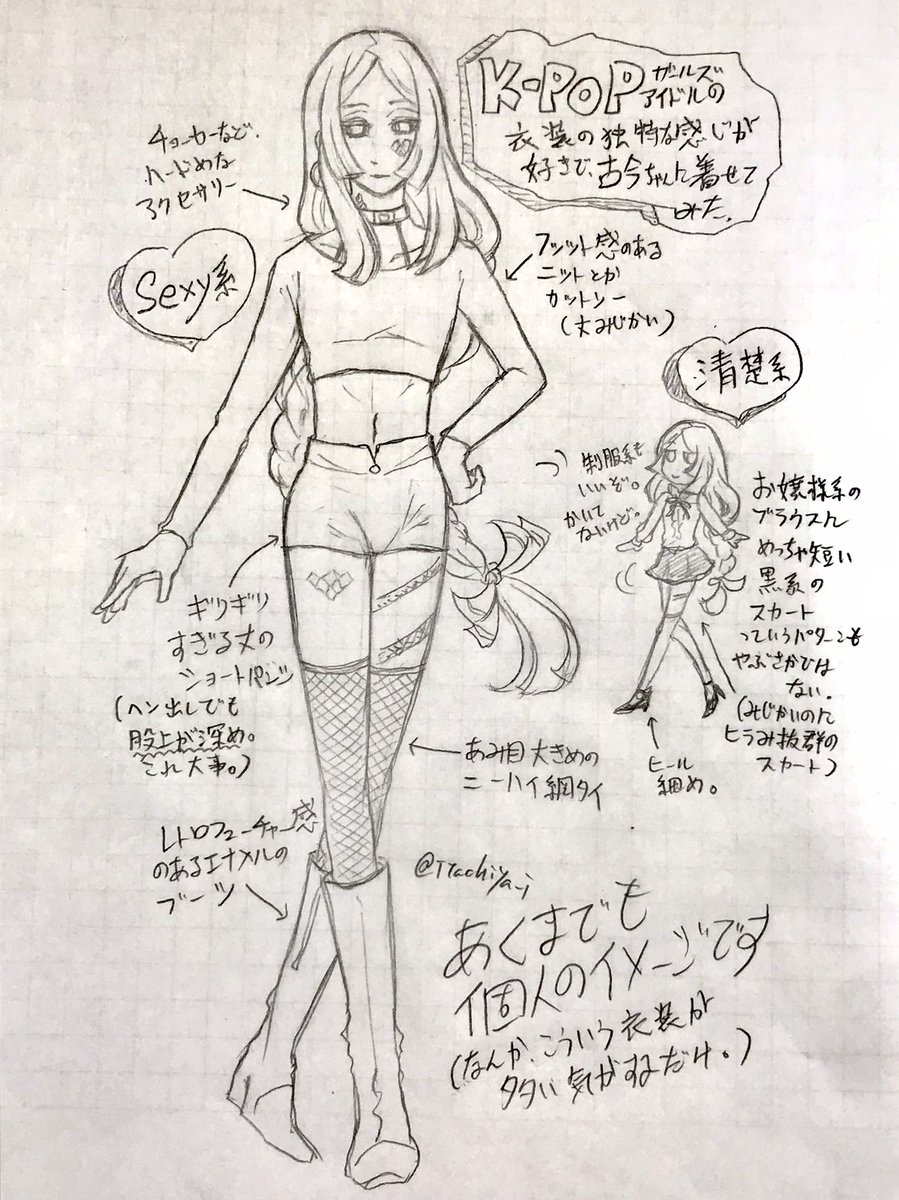 K-POP ガールズ
アイドルの
衣装の独特な感じが
好きで、古今ちゃんに着せて
みた。
チョーカーなど、
ハードめな
アクセサリー
Sexy系
フィット感のある
ニットとか
カットソー
(丈みじかい)
清楚系
制服系も
いいぞ。
かいて
ないけど。
お嬢様系の
ブラウスに
めっちゃ短い
黒系の
スカート
っていうパターンも
やぶさかでは
ない。
(みじかいのに
ヒラみ抜群の
スカート)
ヒール
細め。
ギリギリ
すぎる丈の
ショートパンツ
(ヘソ出しでも
股上が深め。
これ大事。)
あみ目大きめの
ニーハイ網タイ
レトロフューチャー感
のあるエナメルの
ブーツ
あくまでも
個人のイメージです
(なんか、こういう衣装が
多い気がするだけ。)